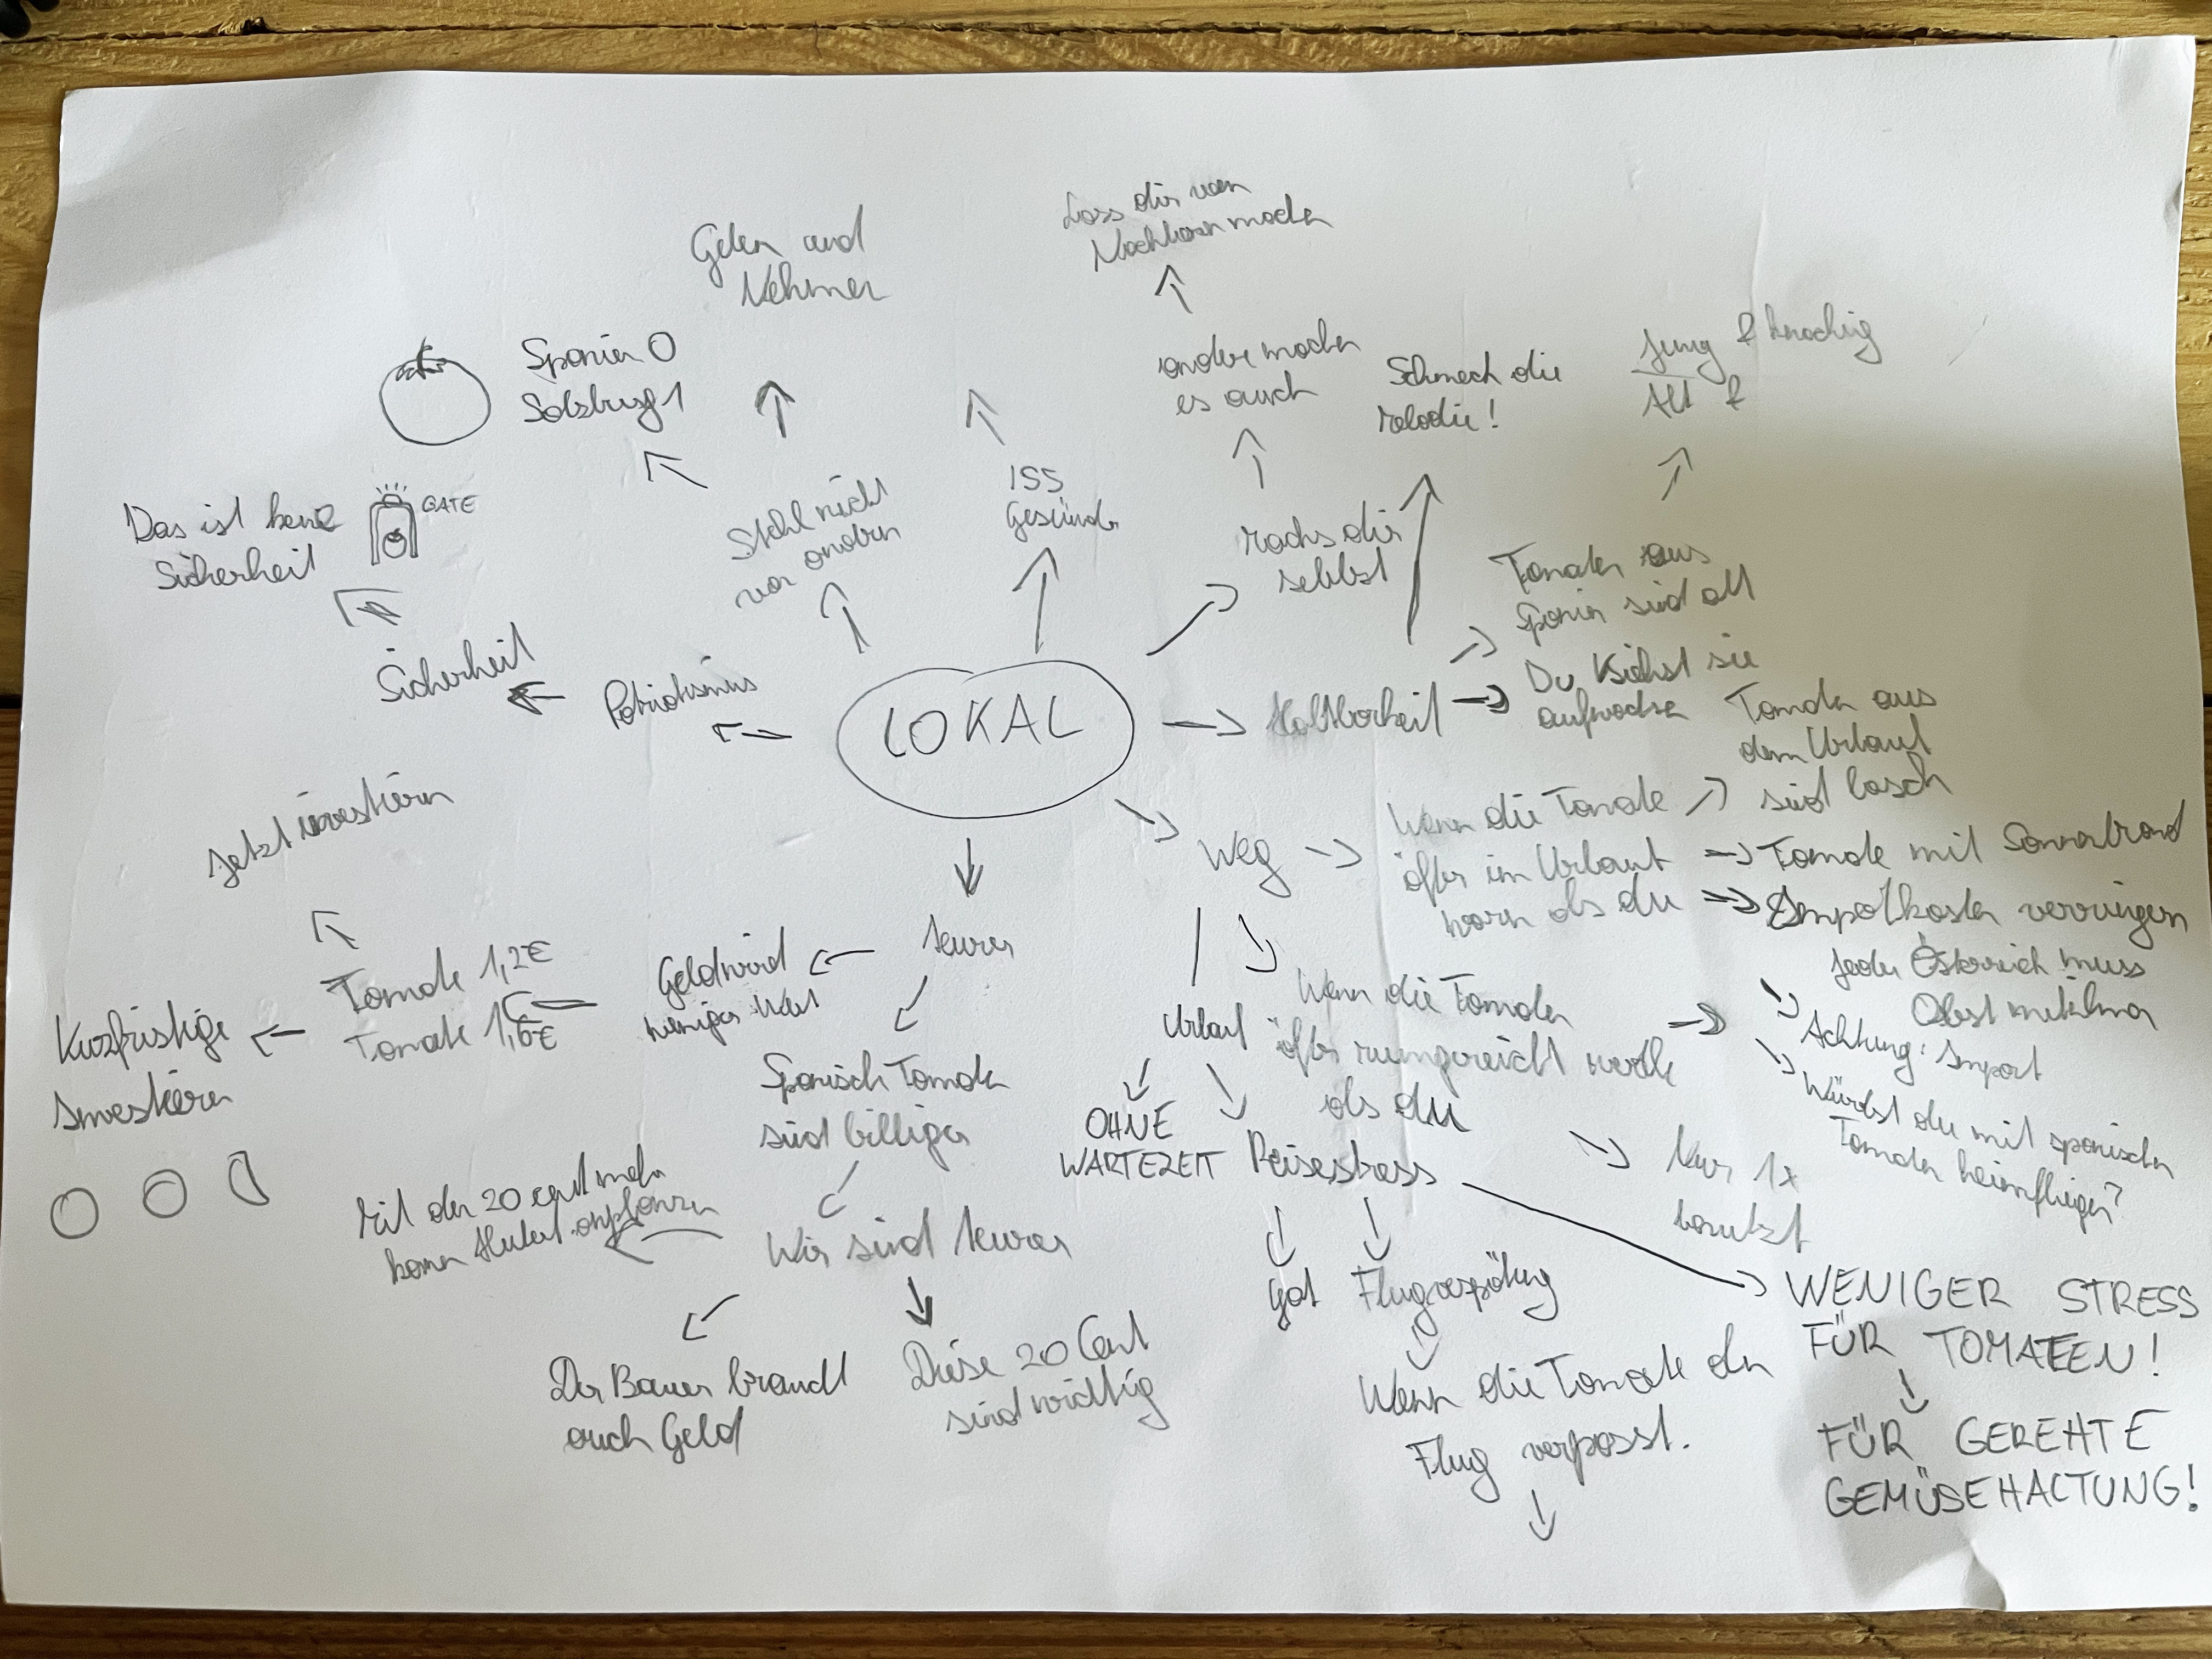 Lass dir vom
Nachbarn machen
Geben und
Nehmen
andere machen
es auch
Schmeck die
Melodie!
Jung & knackig
Alt &
Spanien 0
Salzburg 1
Das ist keine
Sicherheit
GATE
Stehl nicht
von andern
ISS
Gesünder
Machs dir
selbst
Tomaten aus
Spanien sind alt
Sicherheit
Patriotismus
LOKAL
Haltbarkeit
Du siehst sie
aufwachsen
Tomaten aus
dem Urlaub
sind lasch
Jetzt investieren
Weg
Wenn die Tomate
öfter im Urlaub
warn als du
Tomate mit Sonnenbrand
Importkosten verringern
Jeder Österreich muss
Obst mitnehmen
teurer
Geld wird
weniger Wert
Tomate 1,2€
Tomate 1,6€
Kurzfristige
Investieren
Urlaub
Wenn die Tomaten
öfter rumgereicht werden
als du
Achtung: Import
Würdst du mit spanischen
Tomaten heimfliegen?
Nur 1x
benutzt
Spanisch Tomaten
sind billiger
OHNE
WARTEZEIT
Reisestress
Mit den 20 cent mehr
kann Hubert anpflanzen
Wir sind teurer
Der Bauer braucht
auch Geld
Diese 20 Cent
sind wichtig
Flugverspätung
Wenn die Tomate den
Flug verpasst.
WENIGER STRESS
FÜR TOMATEEN!
FÜR GEREHTE
GEMÜSEHALTUNG!